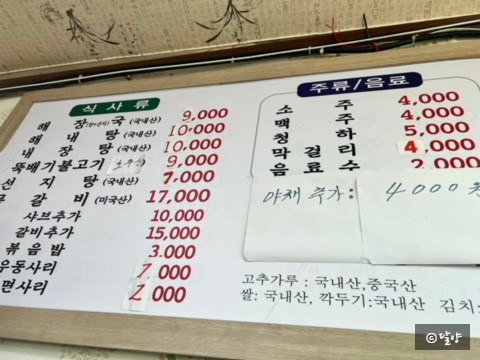 식 사 류
해 장 국 (국내산) 9,000
해 내 탕 (국내산) 10,000
내 장 탕 (국내산) 10,000
뚝배기불고기 9,000
선 지 탕 (국내산) 7,000
갈 비 (미국산) 17,000
샤브추가 10,000
갈비추가 15,000
볶음밥 3,000
우동사리 2,000
면사리 2,000
주류/음료
소 주 4,000
맥 주 4,000
청 하 5,000
막 걸 리 4,000
음 료 수 2,000
야채 추가: 4000원
고추가루 : 국내산,중국산
쌀: 국내산, 깍두기:국내산 김치:
©달양